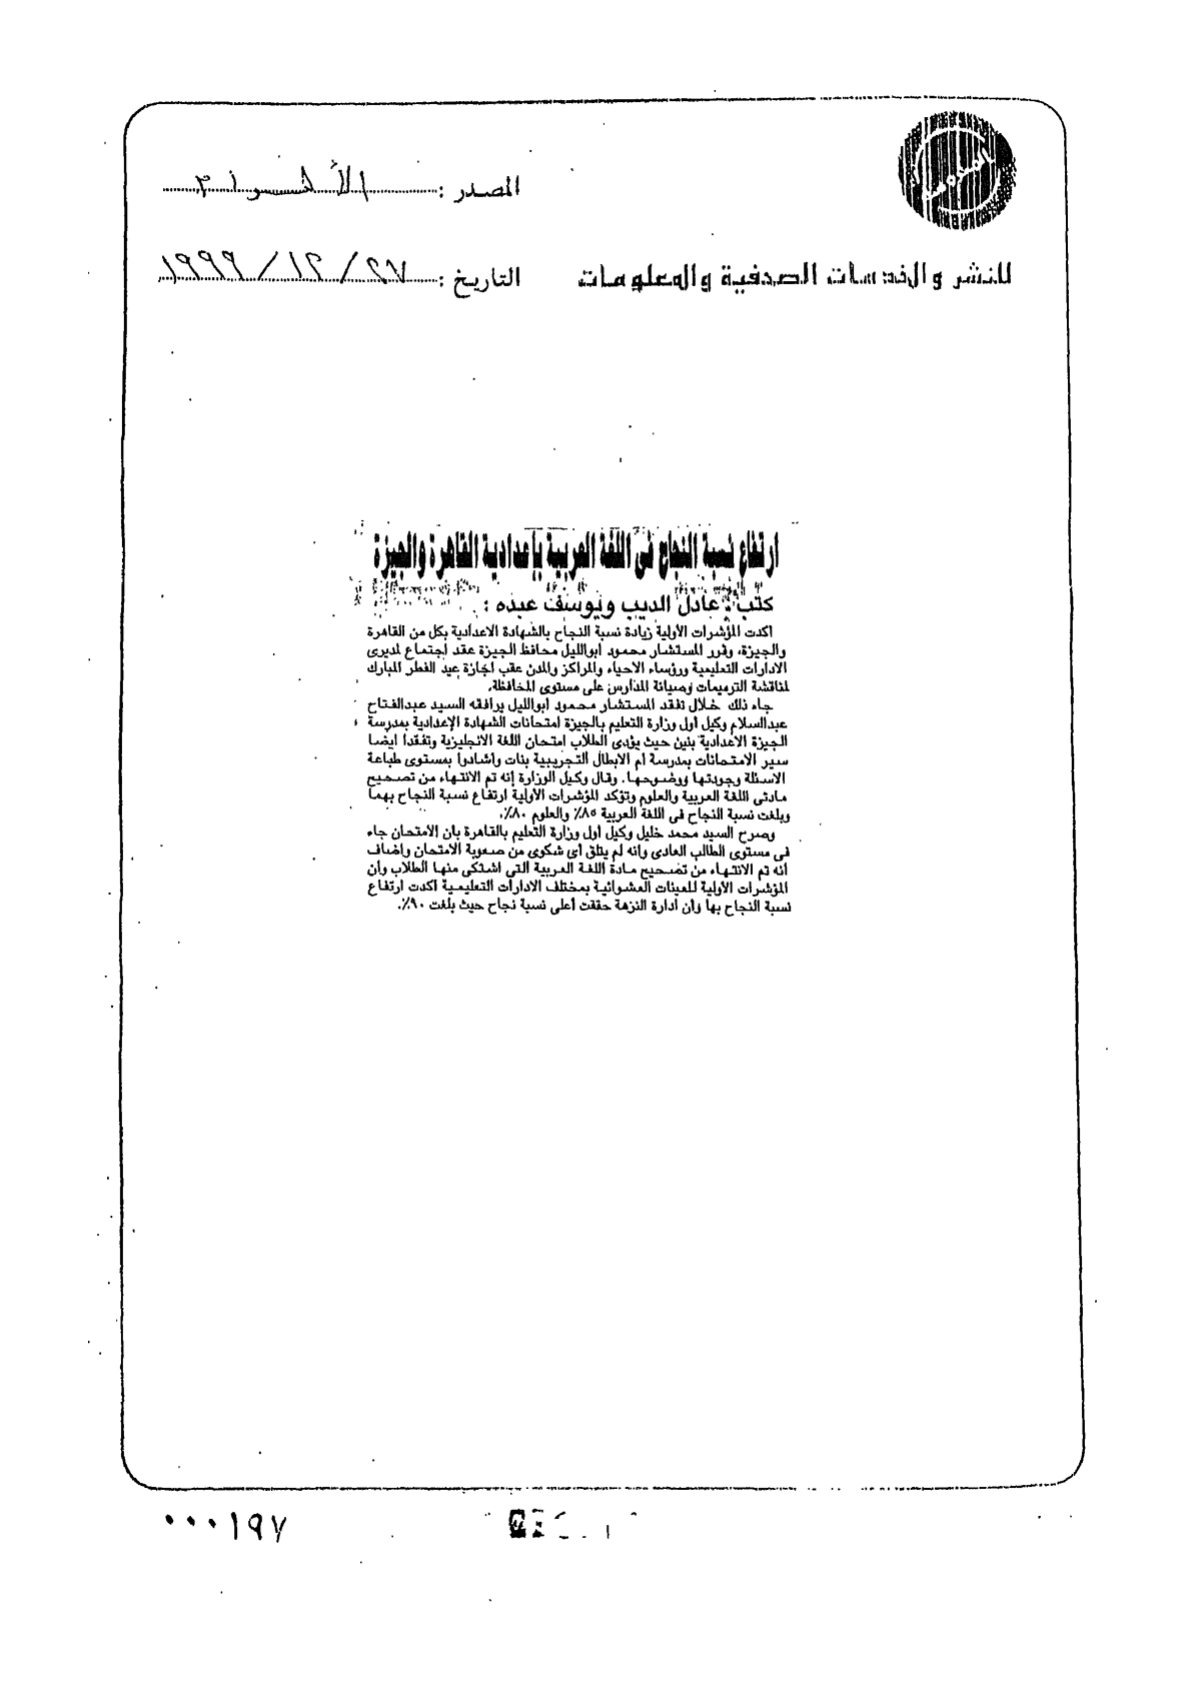 المصدر : الأهرام
للنشر والخدمات الصحفية والمعلومات
التاريخ : ٢٧ / ١٢ / ١٩٩٩
ارتفاع نسبة النجاح فى اللغة العربية بإعدادية القاهرة والجيزة
كتب : عادل الديب ويوسف عبده :
اكدت المؤشرات الأولية زيادة نسبة النجاح بالشهادة الاعدادية بكل من القاهرة
والجيزة، وقرر المستشار محمود ابوالليل محافظ الجيزة عقد اجتماع لمديرى
الادارات التعليمية ورؤساء الاحياء والمراكز والمدن عقب اجازة عيد الفطر المبارك
لمناقشة الترميمات وصيانة المدارس على مستوى المحافظة.
جاء ذلك خلال تفقد المستشار محمود ابوالليل يرافقه السيد عبدالفتاح
عبدالسلام وكيل أول وزارة التعليم بالجيزة امتحانات الشهادة الإعدادية بمدرسة
الجيزة الاعدادية بنين حيث يؤدى الطلاب امتحان اللغة الانجليزية وتفقدا ايضا
سير الامتحانات بمدرسة أم الابطال التجريبية بنات وأشادوا بمستوى طباعة
الاسئلة وجودتها ووضوحها. وقال وكيل الوزارة إنه تم الانتهاء من تصحيح
مادتى اللغة العربية والعلوم وتؤكد المؤشرات الأولية ارتفاع نسبة النجاح بهما
وبلغت نسبة النجاح فى اللغة العربية ٨٥٪ والعلوم ٨٠٪.
وصرح السيد محمد خليل وكيل أول وزارة التعليم بالقاهرة بان الامتحان جاء
فى مستوى الطالب العادى وانه لم يتلق أى شكوى من صعوبة الامتحان واضاف
انه تم الانتهاء من تصحيح مادة اللغة العربية التى اشتكى منها الطلاب وأن
المؤشرات الأولية للعينات العشوائية بمختلف الادارات التعليمية اكدت ارتفاع
نسبة النجاح بها وأن ادارة النزهة حققت أعلى نسبة نجاح حيث بلغت ٩٠٪.
٠٠٠١٩٧